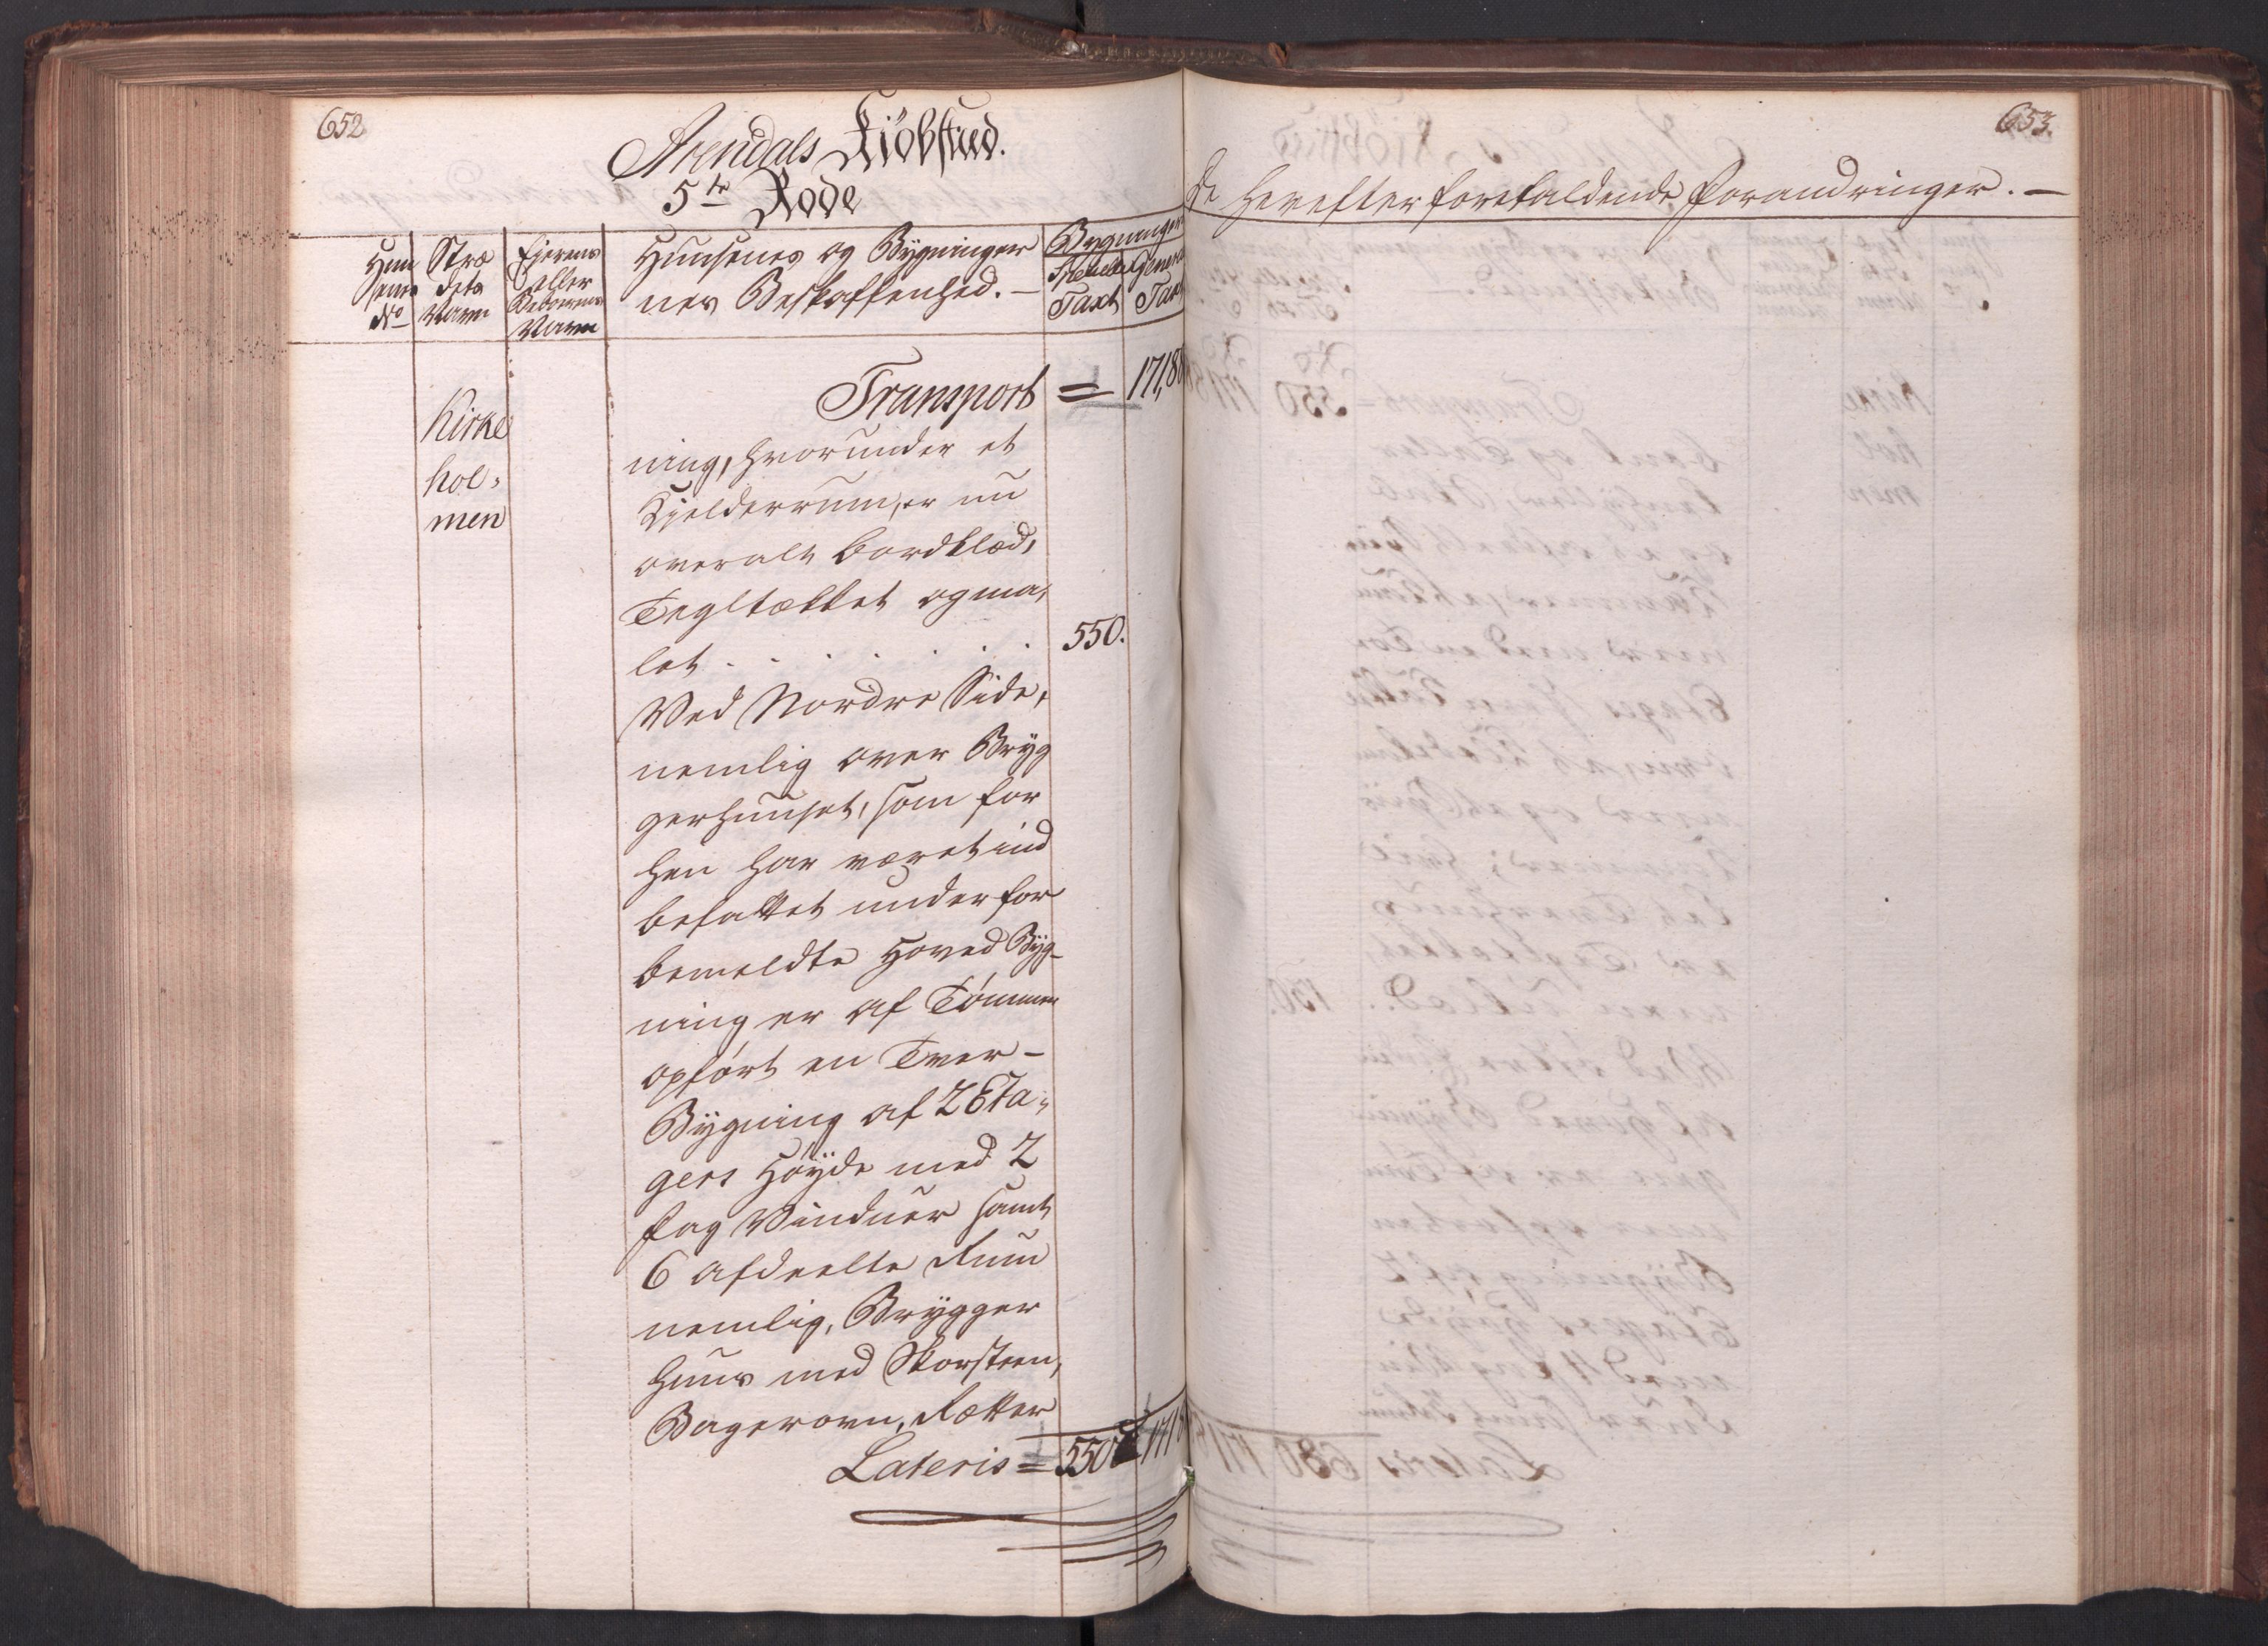 652
Arendals Kiöbsted.
5te Rode
Huu
senes
No
Stræ
dets
Navn
Ejerens
eller
Beboerens
Navn
Huusenes og Bygninger
nes Beskaffenhed. —
Bygninger
Specielle
Taxt
General
Taxt
Transport = 171,8
Kirke
hol-
men
ning, hvorunder et
Kjelderrum, er nu
overalt bordklæd,
Tegltækket og ma,
let . . . . . . . 550.
Ved Nordre Side,
nemlig over Bryg
gerhuuset, som for
hen har været ind
befattet under for
bemeldte Hoved Byg-
ning er af Tömmer
opfört en Tver-
Bygning af 2 Eta-
gers Höyde med 2
Fag Vinduer samt
6 afdeelte Rum
nemlig, Brygger
huus med Skorsteen,
Bagerovn, Rætter
Lateris = 550 171
653.
De herefter forefaldende Forandringer. —